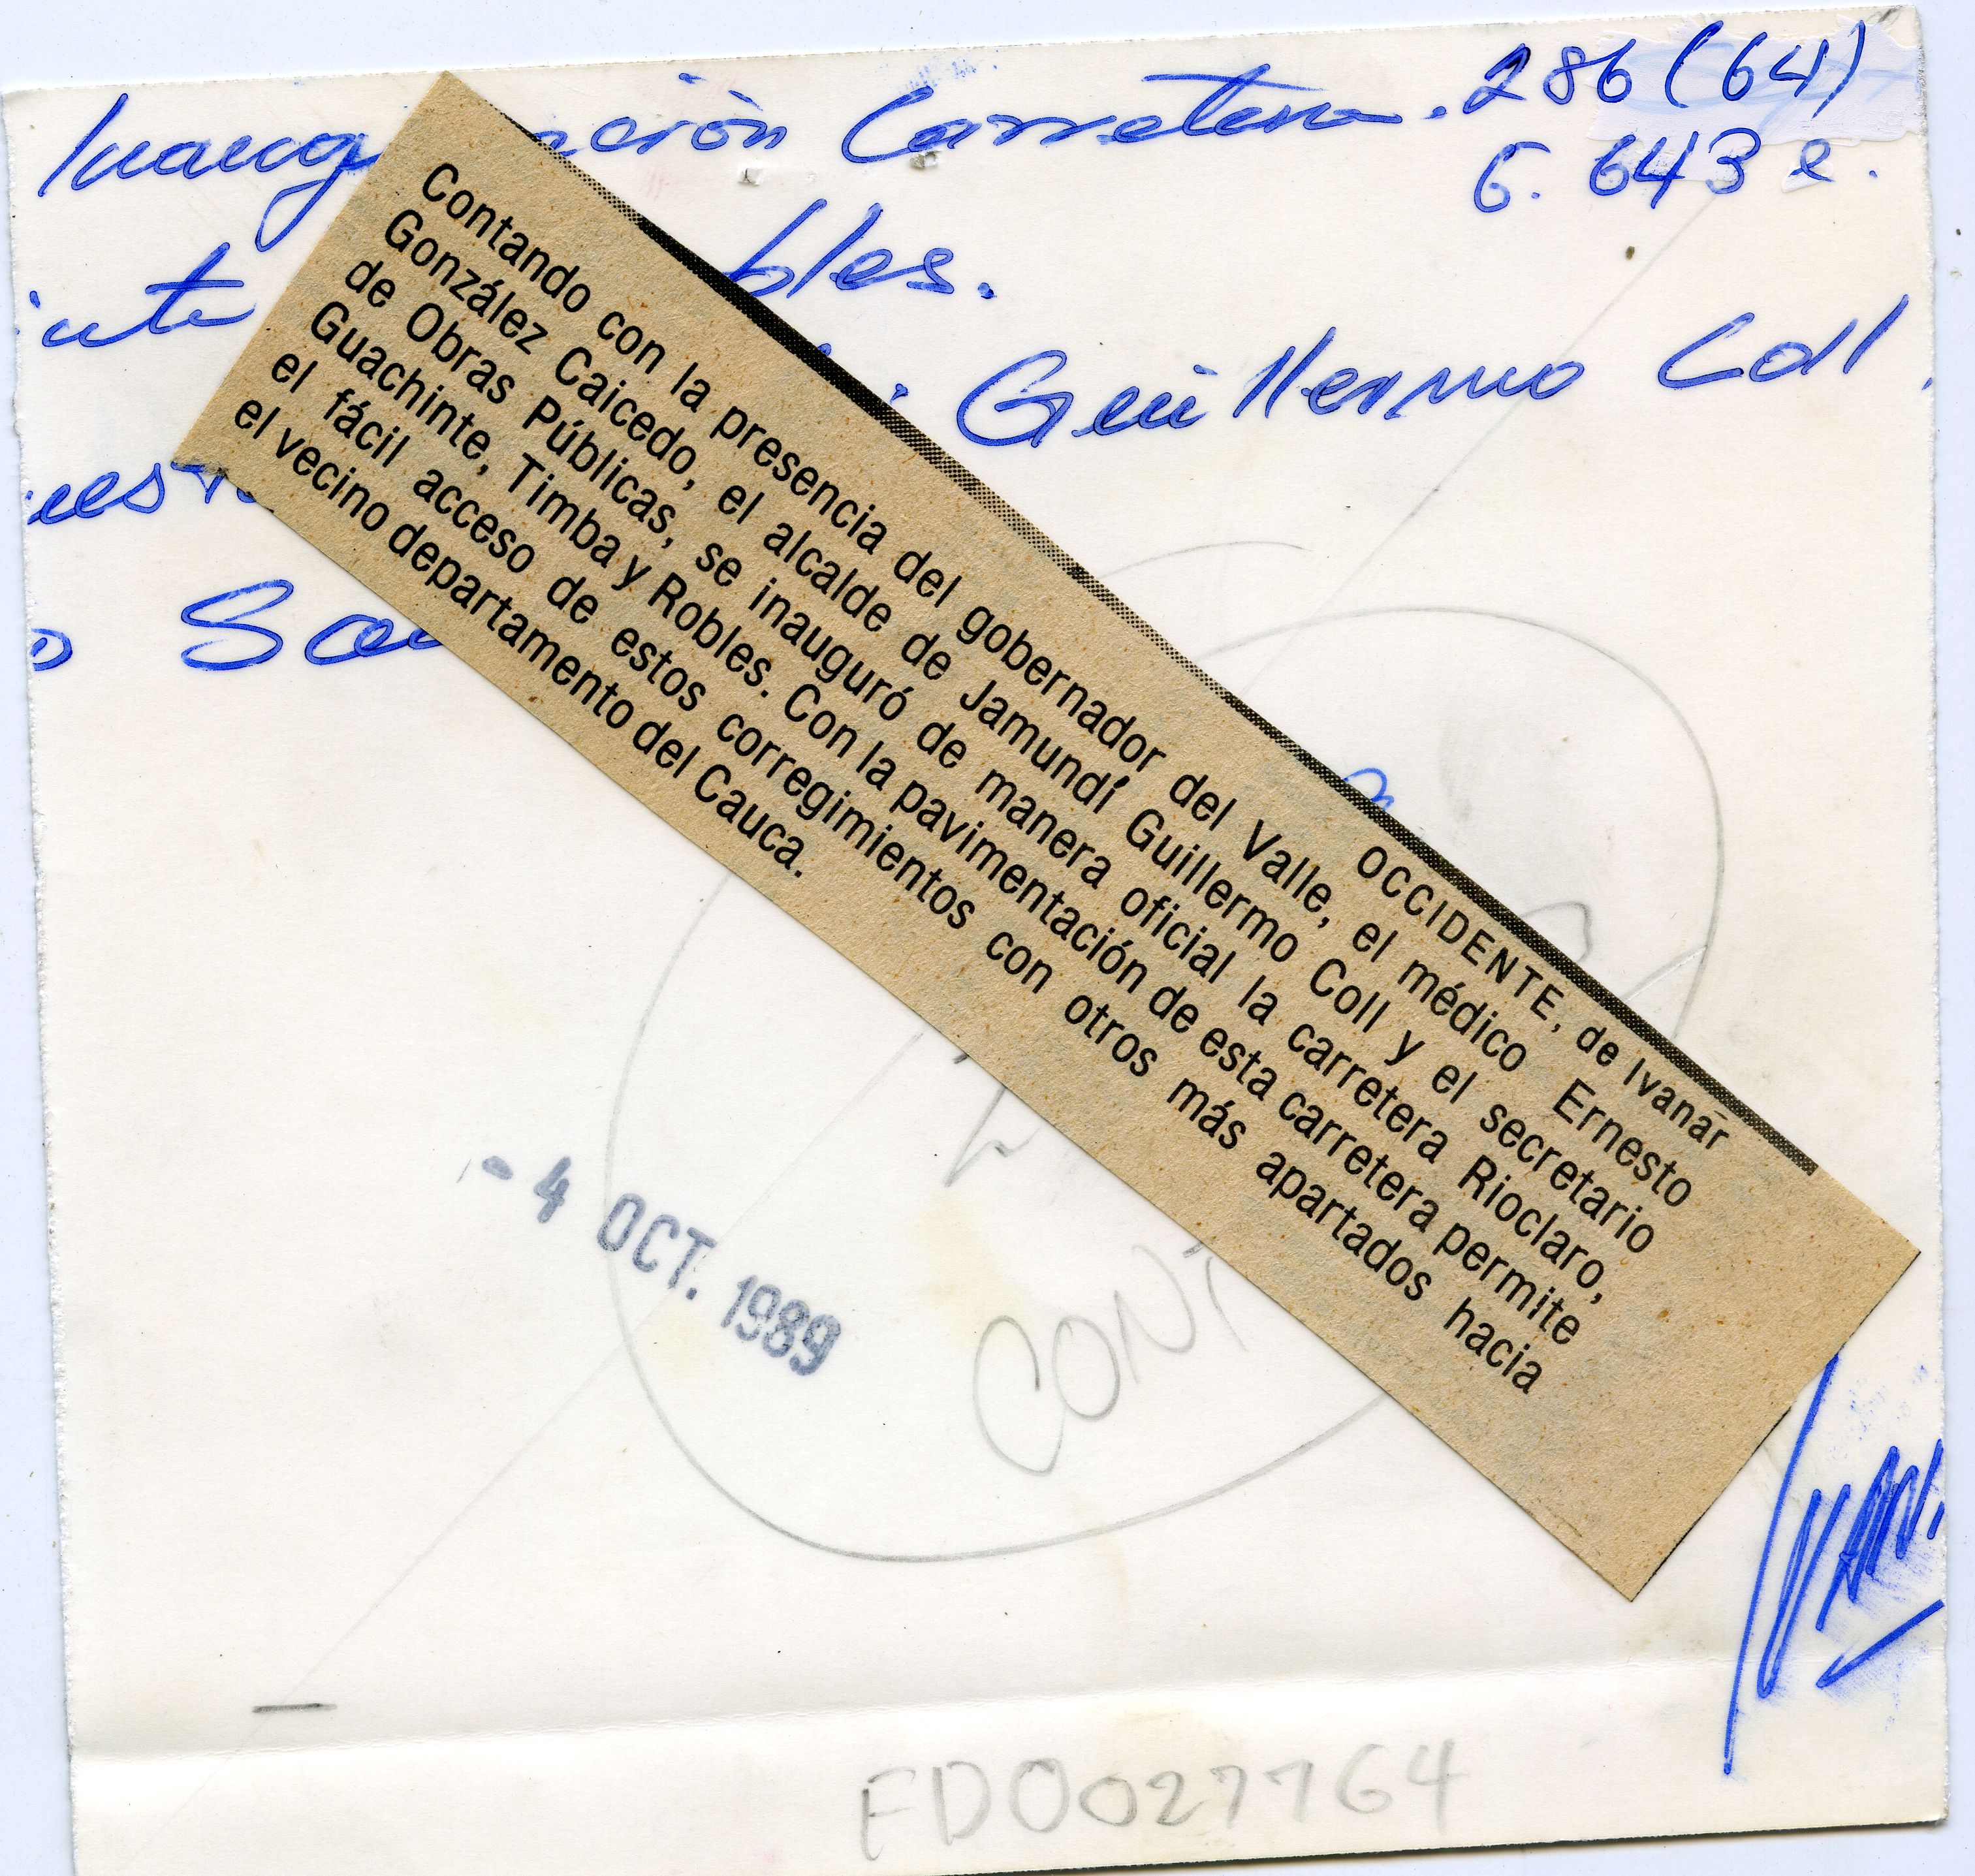 Inaug ación Carretera. 286 (64)
6. 643 e.
bles.
inte Guillermo Coll
OCCIDENTE, de Ivanar
Contando con la presencia del gobernador del Valle, el médico Ernesto
González Caicedo, el alcalde de Jamundí Guillermo Coll y el secretario
de Obras Públicas, se inauguró de manera oficial la carretera Rioclaro,
Guachinte, Timba y Robles. Con la pavimentación de esta carretera permite
el fácil acceso de estos corregimientos con otros más apartados hacia
el vecino departamento del Cauca.
- 4 OCT. 1989
CONT
FD0027764